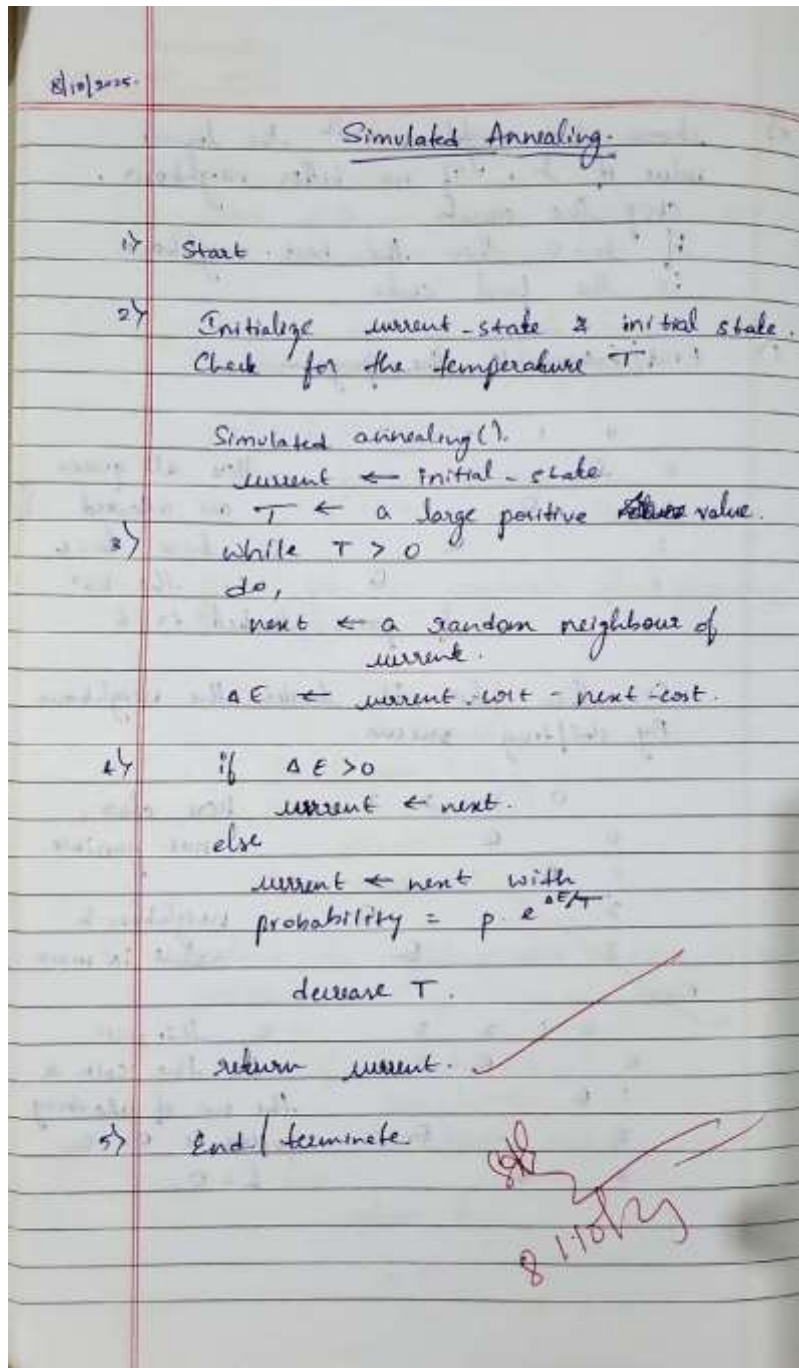 8/10/2025.
Simulated Annealing.
1) Start
2) Initialize current-state & initial state.
Check for the temperature T.
Simulated annealing().
current ← initial-state
T ← a large positive value.
3) while T > 0
do,
next ← a random neighbour of
current.
ΔE ← current-cost - next-cost.
4) if ΔE > 0
current ← next.
else
current ← next with
probability = p e^ΔE/T
decrease T.
return current.
5) End / terminate.